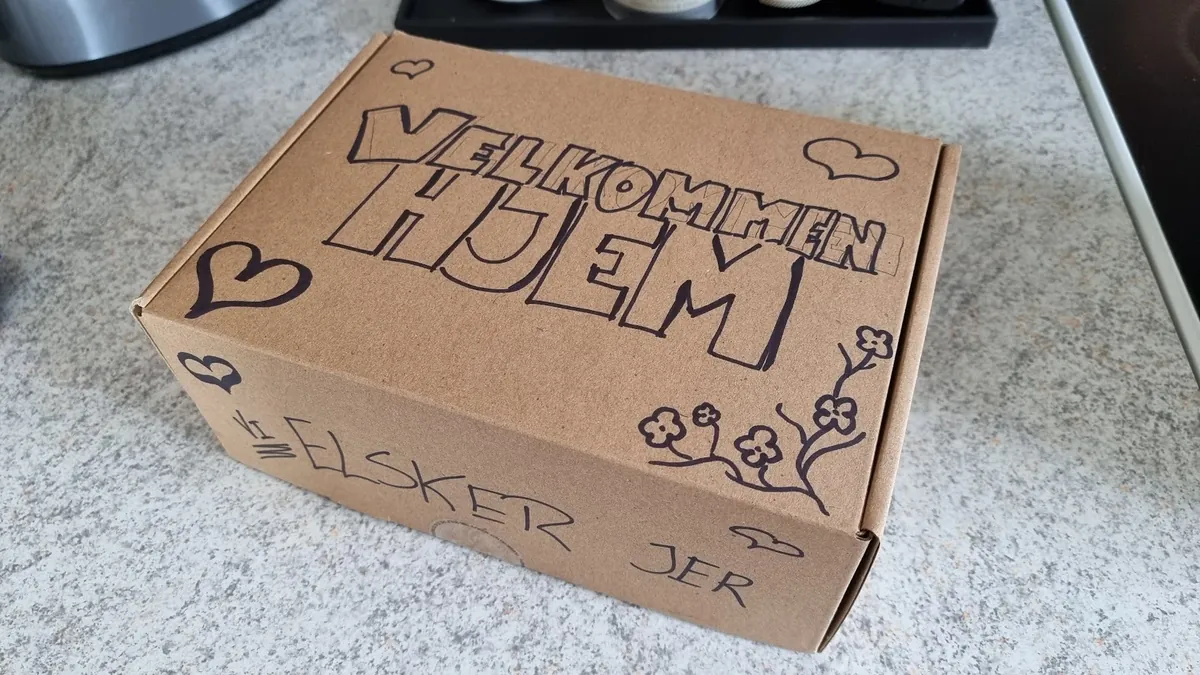 VELKOMMEN
HJEM
VI ELSKER JER